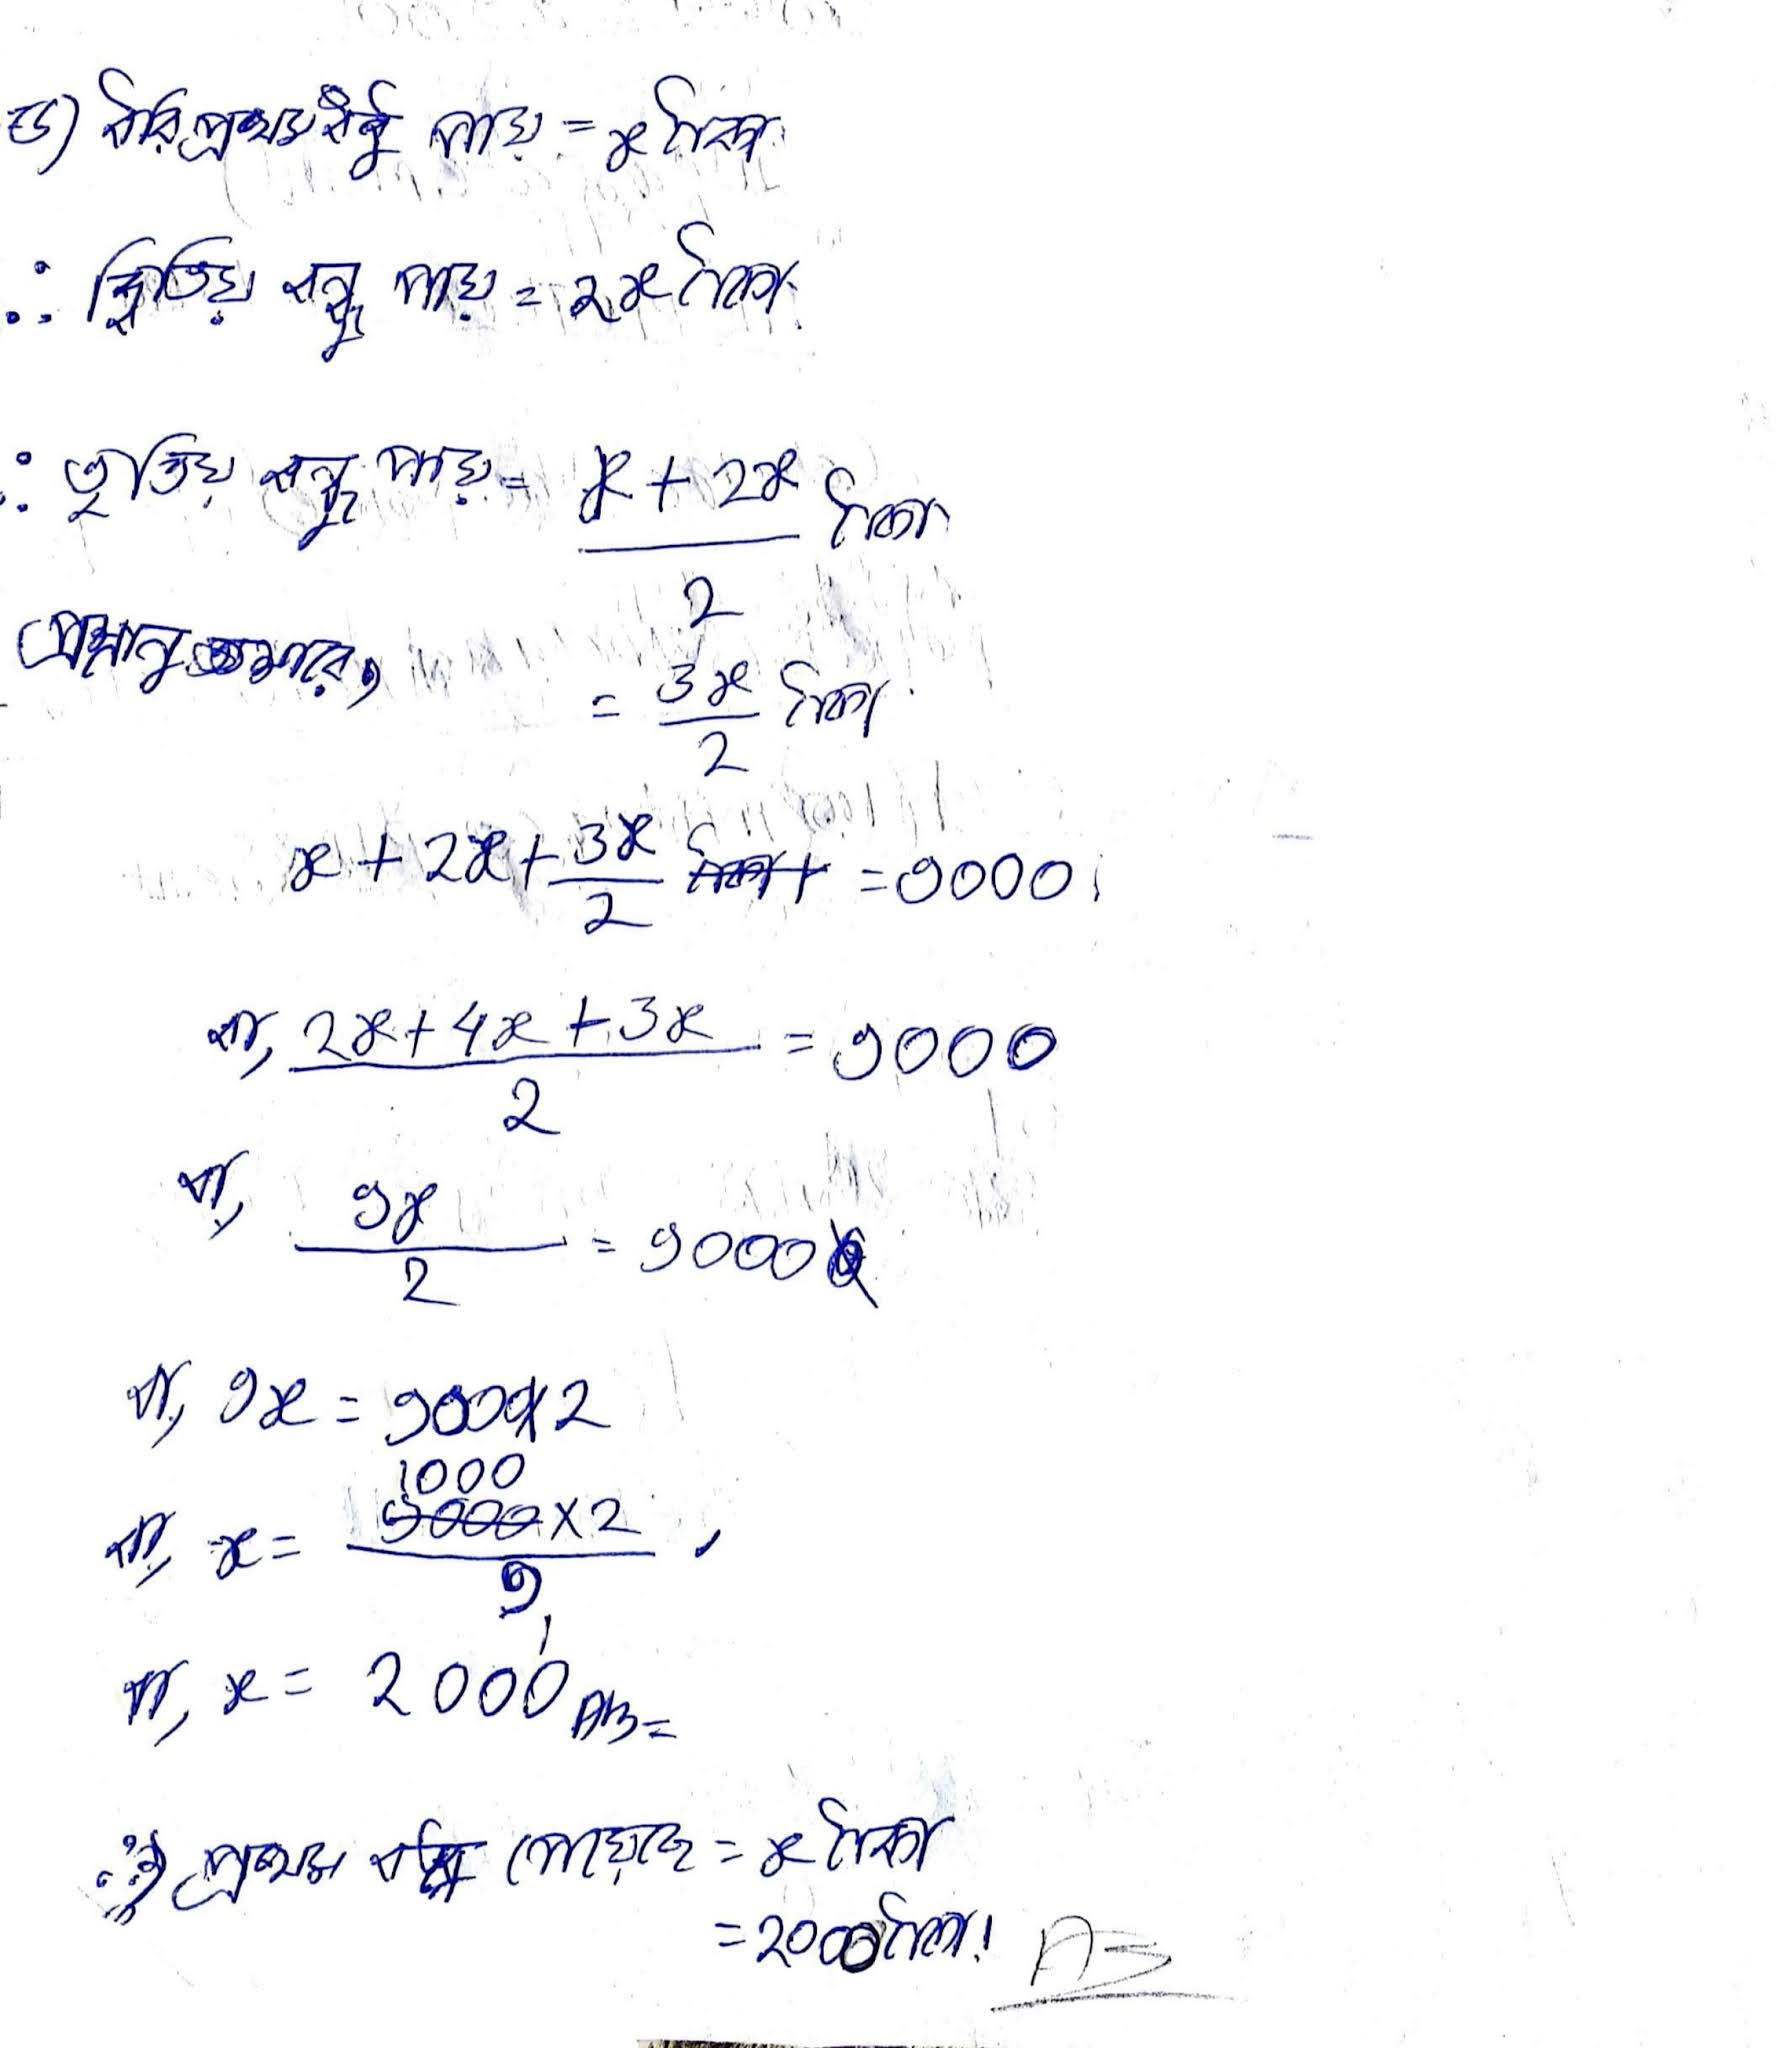 ড) ধরি, প্রথম বন্ধু পায় = x টাকা
∴ দ্বিতিয় বন্ধু পায় = 2x টাকা
∴ তৃতিয় বন্ধু পায় = x + 2x / 2 টাকা
প্রশ্নানুসারে,
= 3x / 2 টাকা
x + 2x + 3x / 2 = 9000
বা, 2x + 4x + 3x / 2 = 9000
বা, 9x / 2 = 9000
বা, 9x = 9000 x 2
1000
বা, x = 9000 x 2 / 9
বা, x = 2000
∴ প্রথম বন্ধু পেয়েছে = x টাকা
= 2000 টাকা।